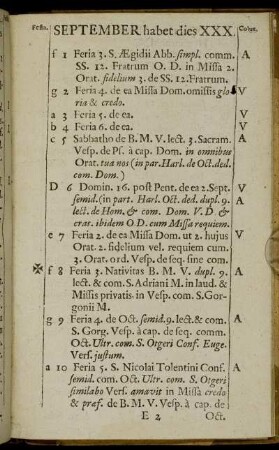 Festa. SEPTEMBER habet dies XXX. Color.
f 1 Feria 3. S. Ægidii Abb. simpl. comm. A
SS. 12. Fratrum O. D. in Missa 2.
Orat. fidelium 3. de SS. 12. Fratrum.
g 2 Feria 4. de ea Missa Dom. omissis glo V
ria & credo.
a 3 Feria 5. de ea. V
b 4 Feria 6. de ea. V
c 5 Sabbatho de B. M. V. lect. 3. Sacram. A
Vesp. de Pſ. à cap. Dom. in omnibus
Orat. tua nos (in par. Harl. de Oct. ded.
com. Dom.)
D 6 Domin. 16. post Pent. de ea 2. Sept. V
semid. (in part. Harl. Oct. ded. dupl. 9. A
lect. de Hom. & com. Dom. V. D. &
cras. ibidem O. D. cum Missa requiem.
e 7 Feria 2. de ea Missa Dom. ut 2. hujus V
Orat. 2. fidelium vel. requiem cum,
3. Orat. ord. Vesp. de seq. sine com.
✠ f 8 Feria 3. Nativitas B. M. V. dupl. 9. A
lect. & com. S. Adriani M. in laud. &
Missis privatis in Vesp. com. S. Gor-
gonii M.
g 9 Feria 4. de Oct. semid. 9. lect. & com. A
S. Gorg. Vesp. à cap. de seq. comm.
Oct. Ultr. com. S. Otgeri Conf. Euge.
Vers. justum.
a 10 Feria 5. S. Nicolai Tolentini Conf. A
semid. com. Oct. Ultr. com. S. Otgeri
similabo Vers. amavit in Missâ credo
& præf. de B. M. V. Vesp. à cap. de
E 2 Oct.